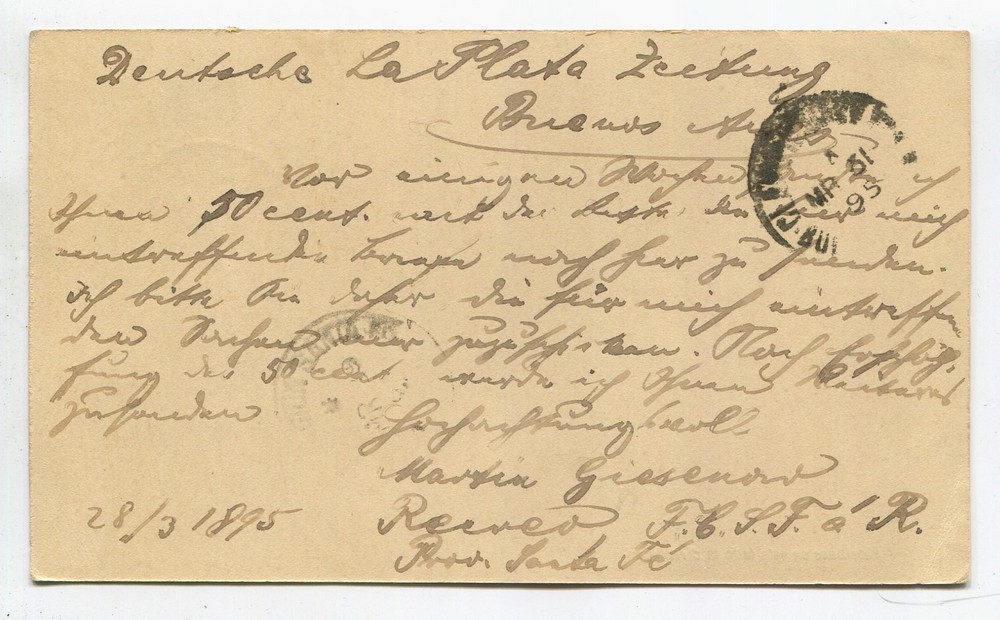 Deutsche La Plata Zeitung
Buenos
Vor einigen Wochen sandte ich
Ihnen 50 cent. mit der Bitte, die für mich
eintreffenden Briefe nach hier zu senden.
Ich bitte Sie daher die für mich eintreffen
den Sachen mir zuzuschicken. Nach Erschöp-
fung der 50 cent werde ich Ihnen Weiteres
zusenden
Hochachtungsvoll
Martin Giesenow
28/3 1895 Recreo F.C.S.F. á R.
Prov. Santa Fé
MR 31
95